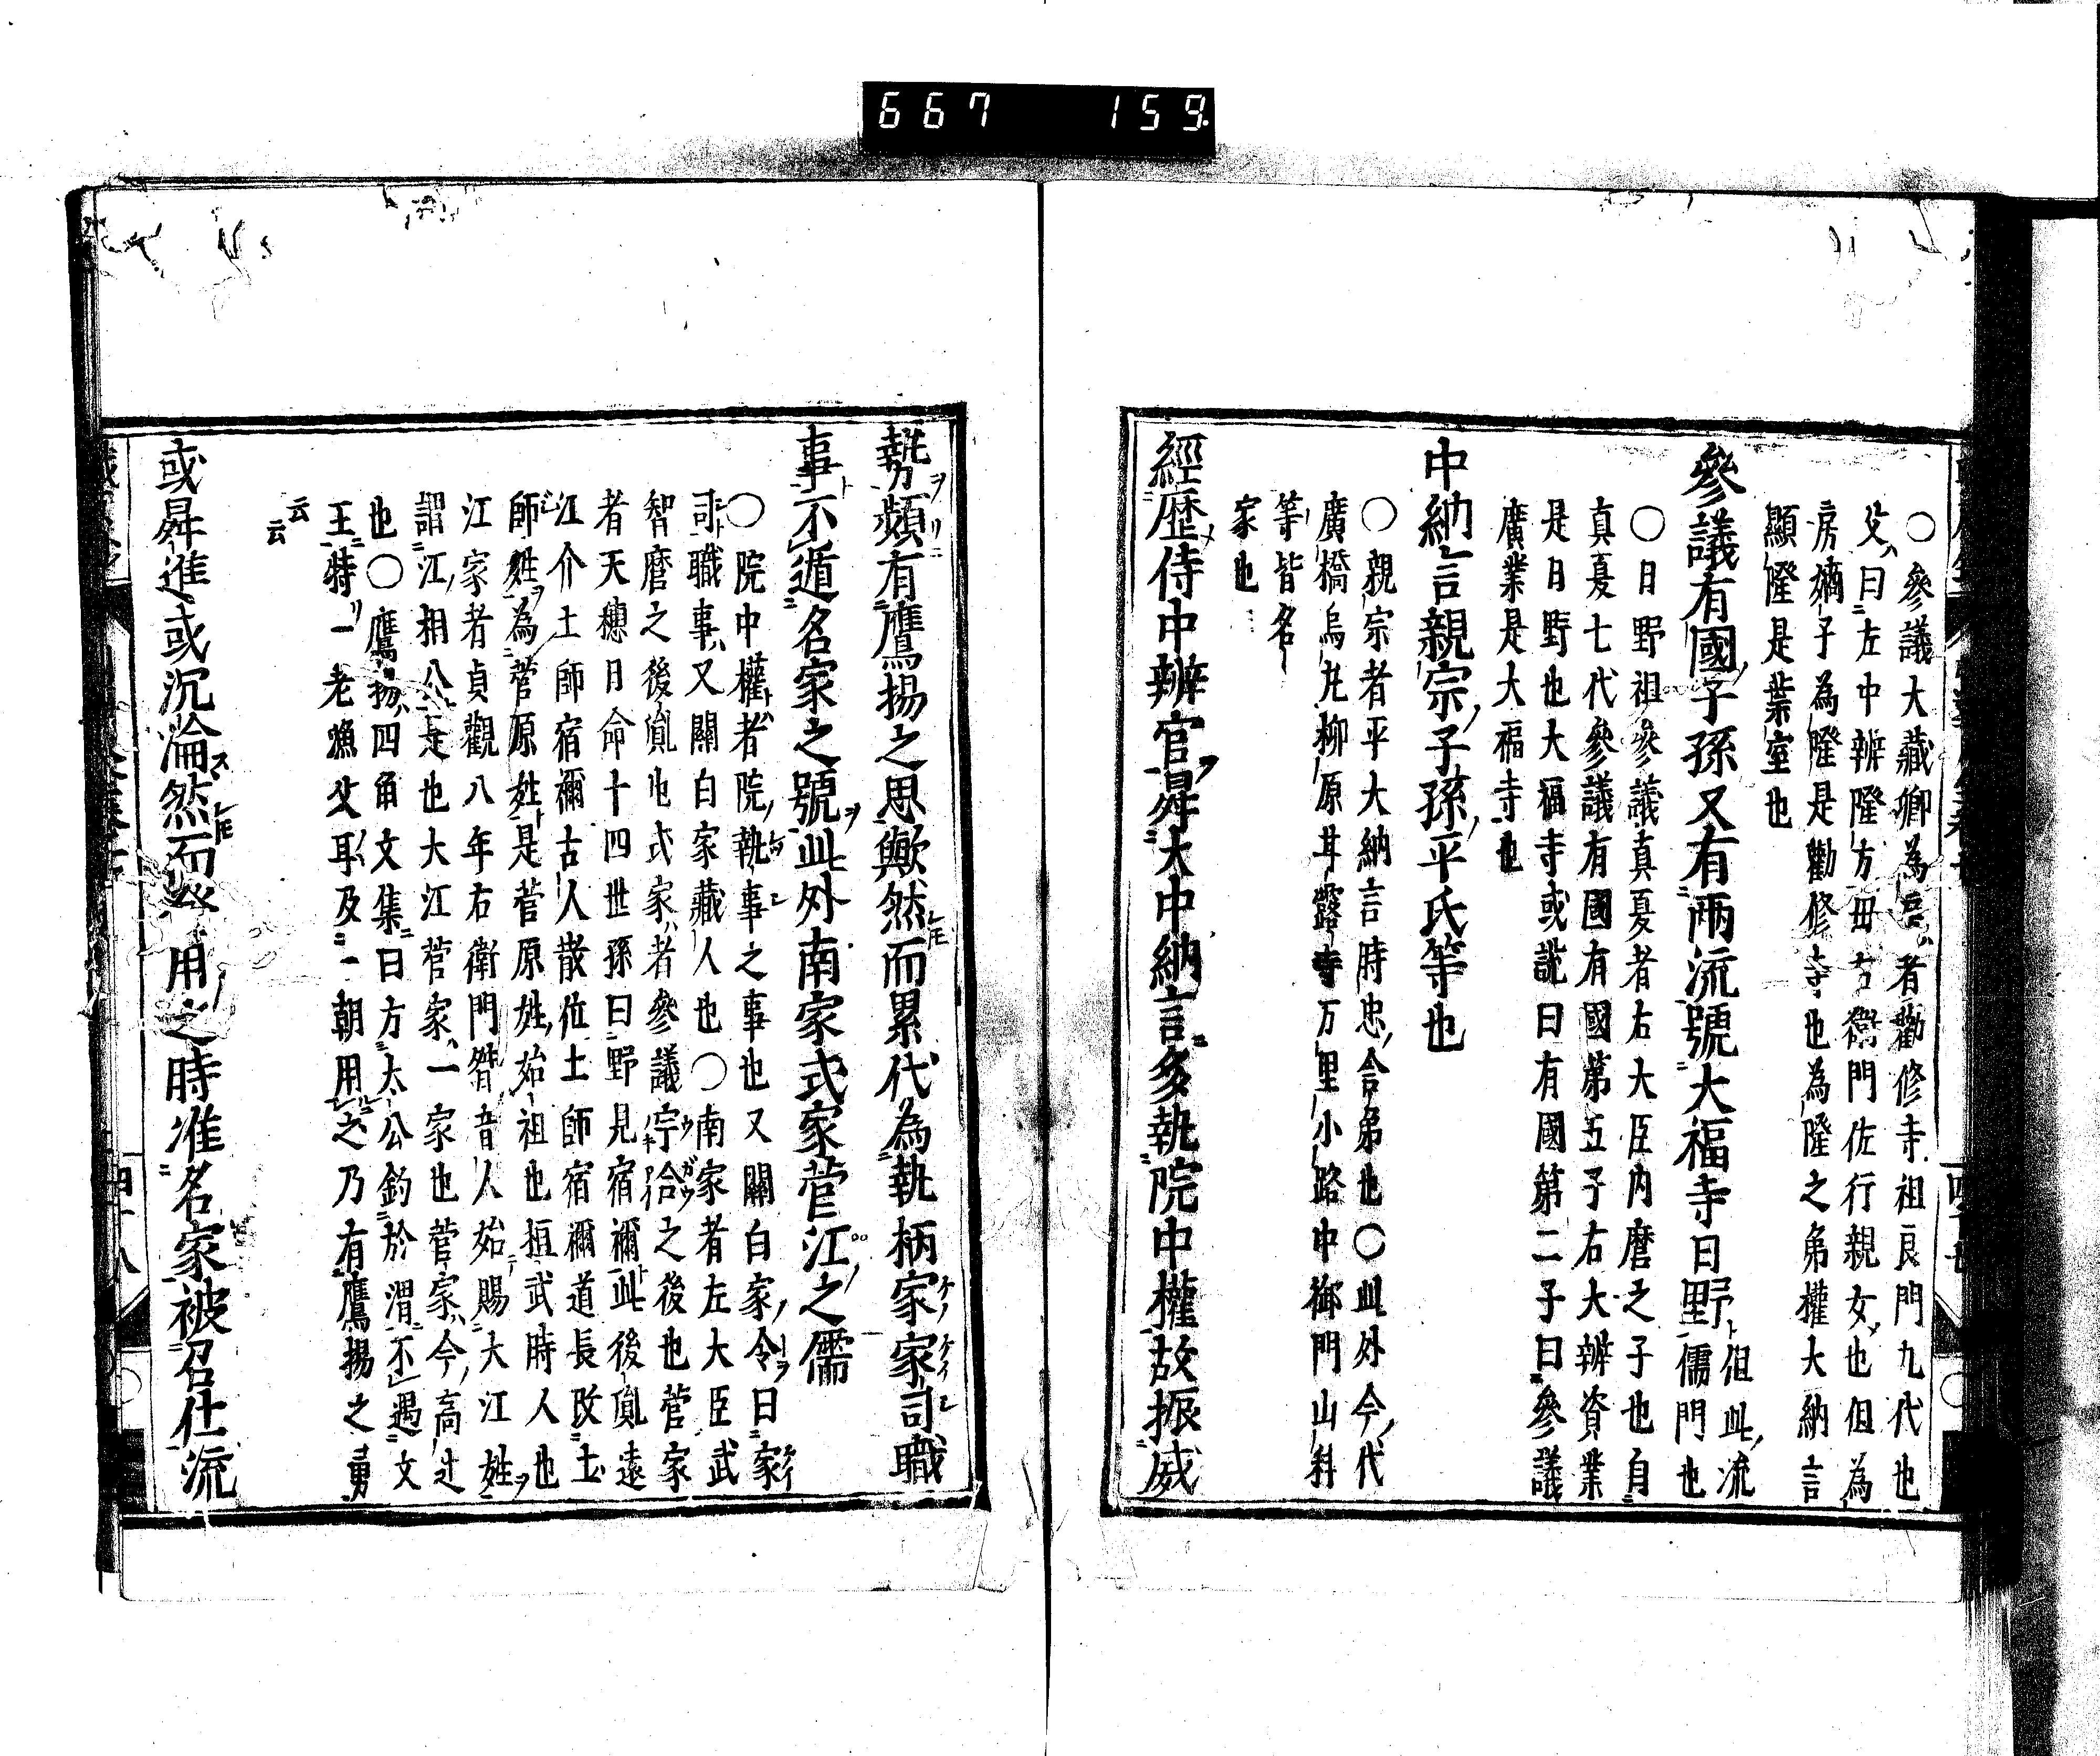 667 159
○參議大藏卿為吾者勸修寺祖良門九代也
父曰左中辨隆方母右衛門佐行親女也但為
房嫡子為隆是勸修寺也為隆之弟權大納言
顯隆是葉室也
參議有國子孫又有兩流號大福寺日野儒門也
但此流
○日野祖參議真夏者右大臣内麿之子也自
真夏七代參議有國有國第五子右大辨資業
是日野也大福寺或説曰有國第二子曰參議
廣業是大福寺也
中納言親宗子孫平氏等也
○親宗者平大納言時忠舍弟也○此外今代
廣橋烏丸柳原甘露寺万里小路中御門山科
等皆名
家也
經歷侍中辨官昇大中納言多執院中權故振威
勢頗有鷹揚之思歟然而累代為執柄家家司職
事不遁名家之號此外南家式家菅江之儒
○院中權者院執事之事也又關白家令曰家
司職事又關白家藏人也○南家者左大臣武
智麿之後胤也式家者參議宇合之後也菅家
者天穂日命十四世孫曰野見宿禰此後胤遠
江介土師宿禰古人散位土師宿禰道長改土
師姓為菅原姓是菅原姓始祖也桓武時人也
江家者貞觀八年右衛門督音人始賜大江姓
謂江相公是也大江菅家一家也菅家今高辻
也○鷹揚四角文集曰方太公釣於渭不遇文
王特一老漁父耳及一朝用之乃有鷹揚之勇
云云
或昇進或沉淪然而用之時准名家被召仕流
四十八